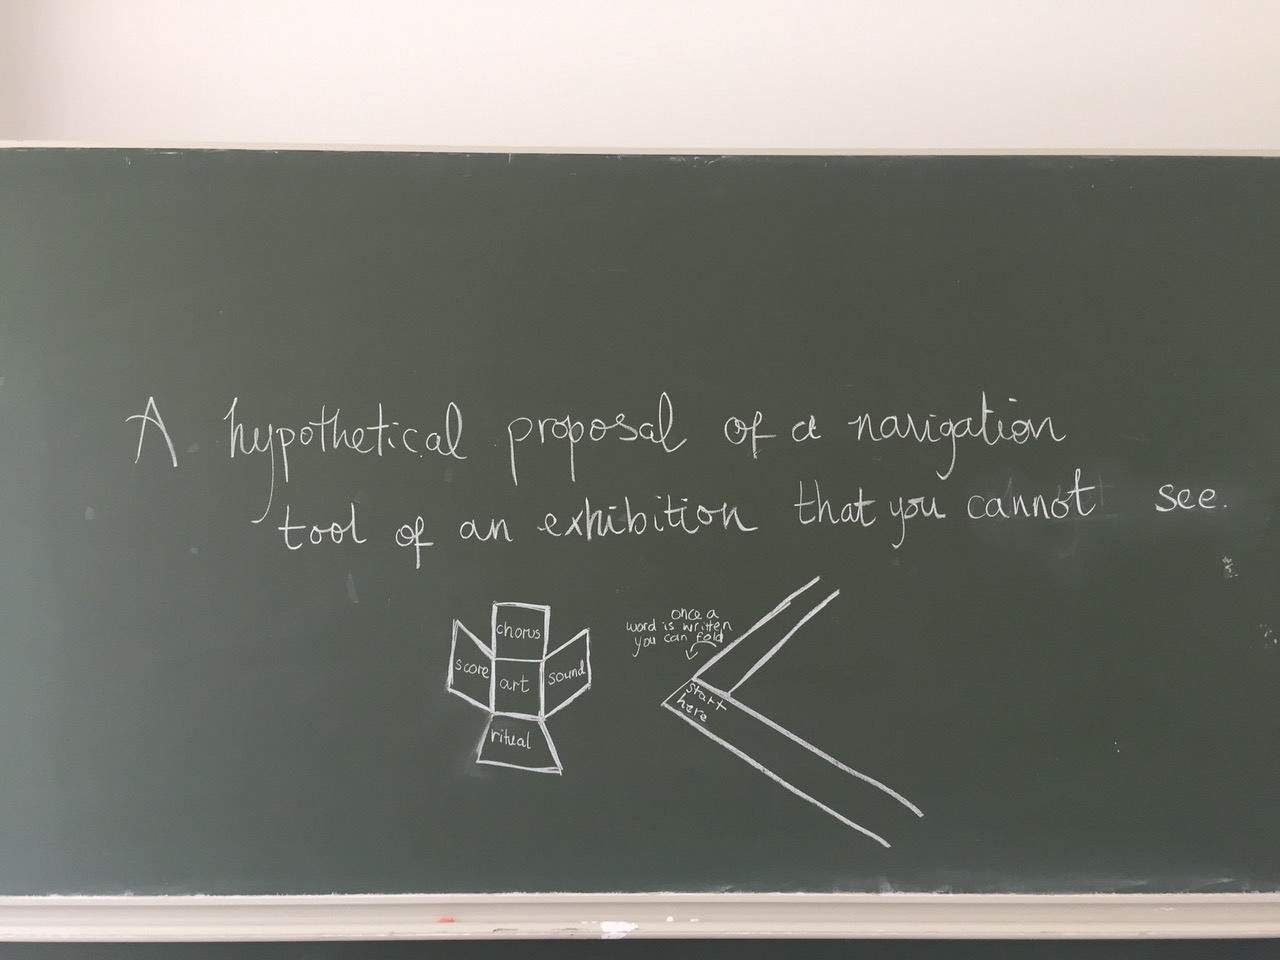 A hypothetical proposal of a navigation
tool of an exhibition that you cannot see.
chorus
score
art
sound
ritual
once a
word is written
you can fold
start
here